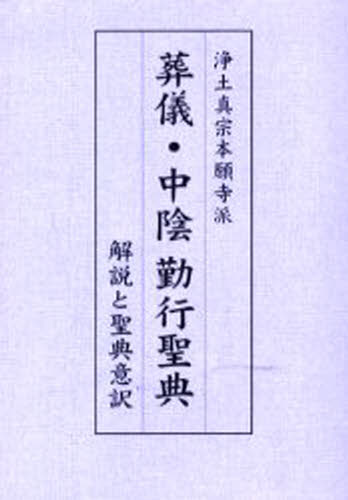 浄土真宗本願寺派
葬儀・中陰 勤行聖典
解説と聖典意訳